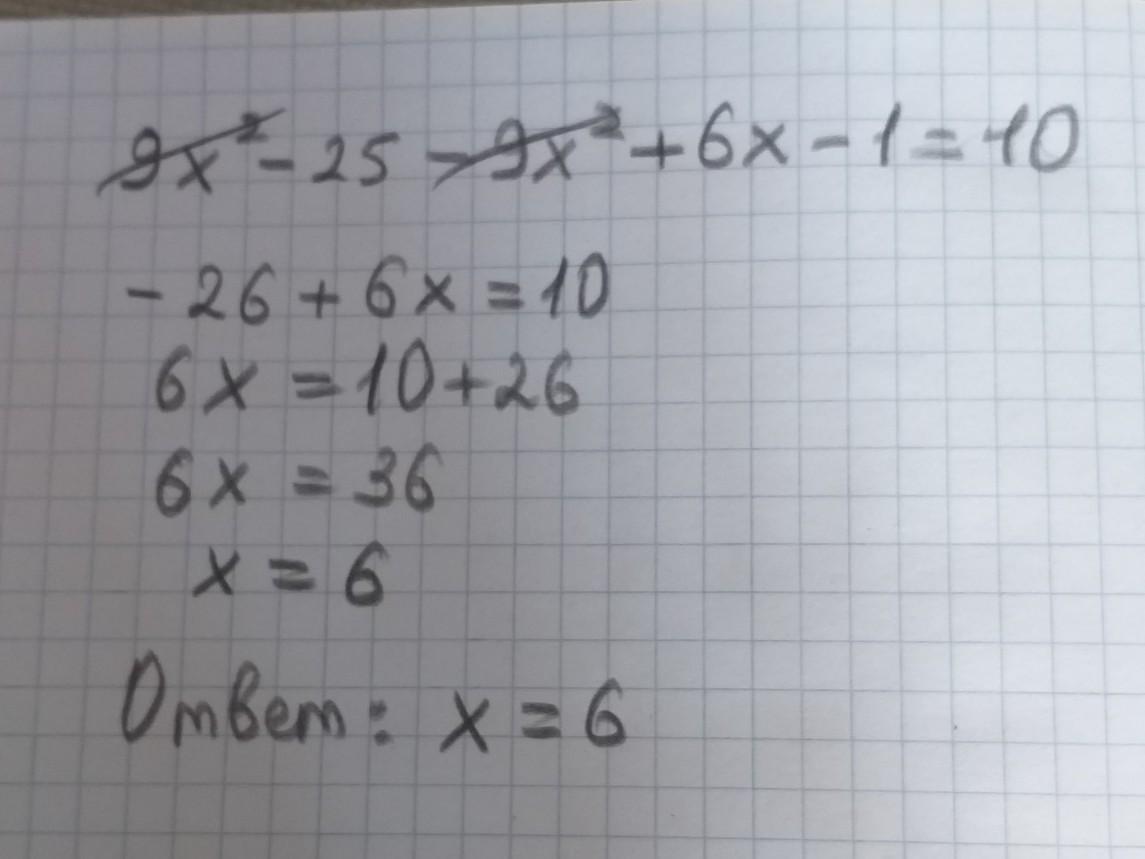 9x² - 25 - 9x² + 6x - 1 = 10
- 26 + 6x = 10
6x = 10 + 26
6x = 36
x = 6
Ответ: x = 6